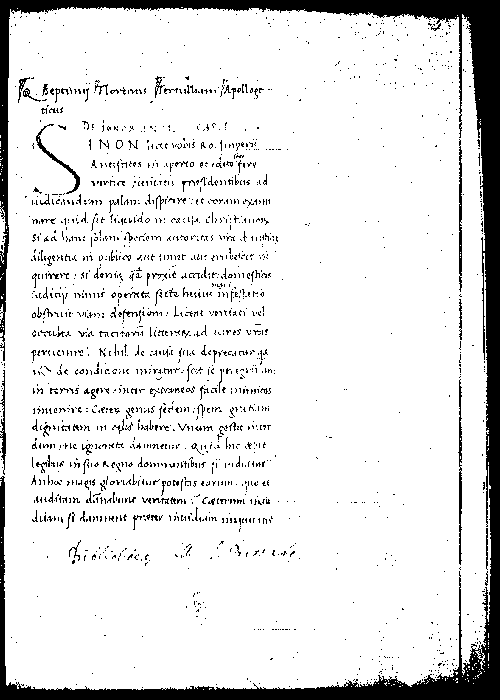 Q Septimij Florentis Tertulliani Apologe-
ticus
DE IGNORANTIA CAP I
SI NON licet vobis Ro. Imperij
Antistites in aperto et
vertice presidentibus ad
iudicandum palam dispicere: et coram exami
nare quid sit liquido in causa christianorum
si ad hanc solam speciem autoritas vra de iustitie
diligentia in publico aut timet aut erubescit in
quirere: si deniq; qd proxie accidit domesticis
iudicijs nimis operata secte huius infestatio
obstruit viam defensioni: Liceat veritati vel
occulta via tacitarum litterarum ad aures vras
pervenire: Nihil de causa sua deprecatur qa
nec de condicione miratur: scit se peregrinam
in terris agere: inter extraneos facile inimicos
invenire: Ceterum genus sedem: spem gratiam
dignitatem in celis habere. Unum gestit inter
dum: ne ignorata damnetur. Quid hic deperit
legibus in suo Regno dominantibus si audiatur
An hoc magis gloriabitur potestas earum: quo et
auditam damnabunt veritatem: Ceterum inau
ditam si damnent preter invidiam iniquitatis